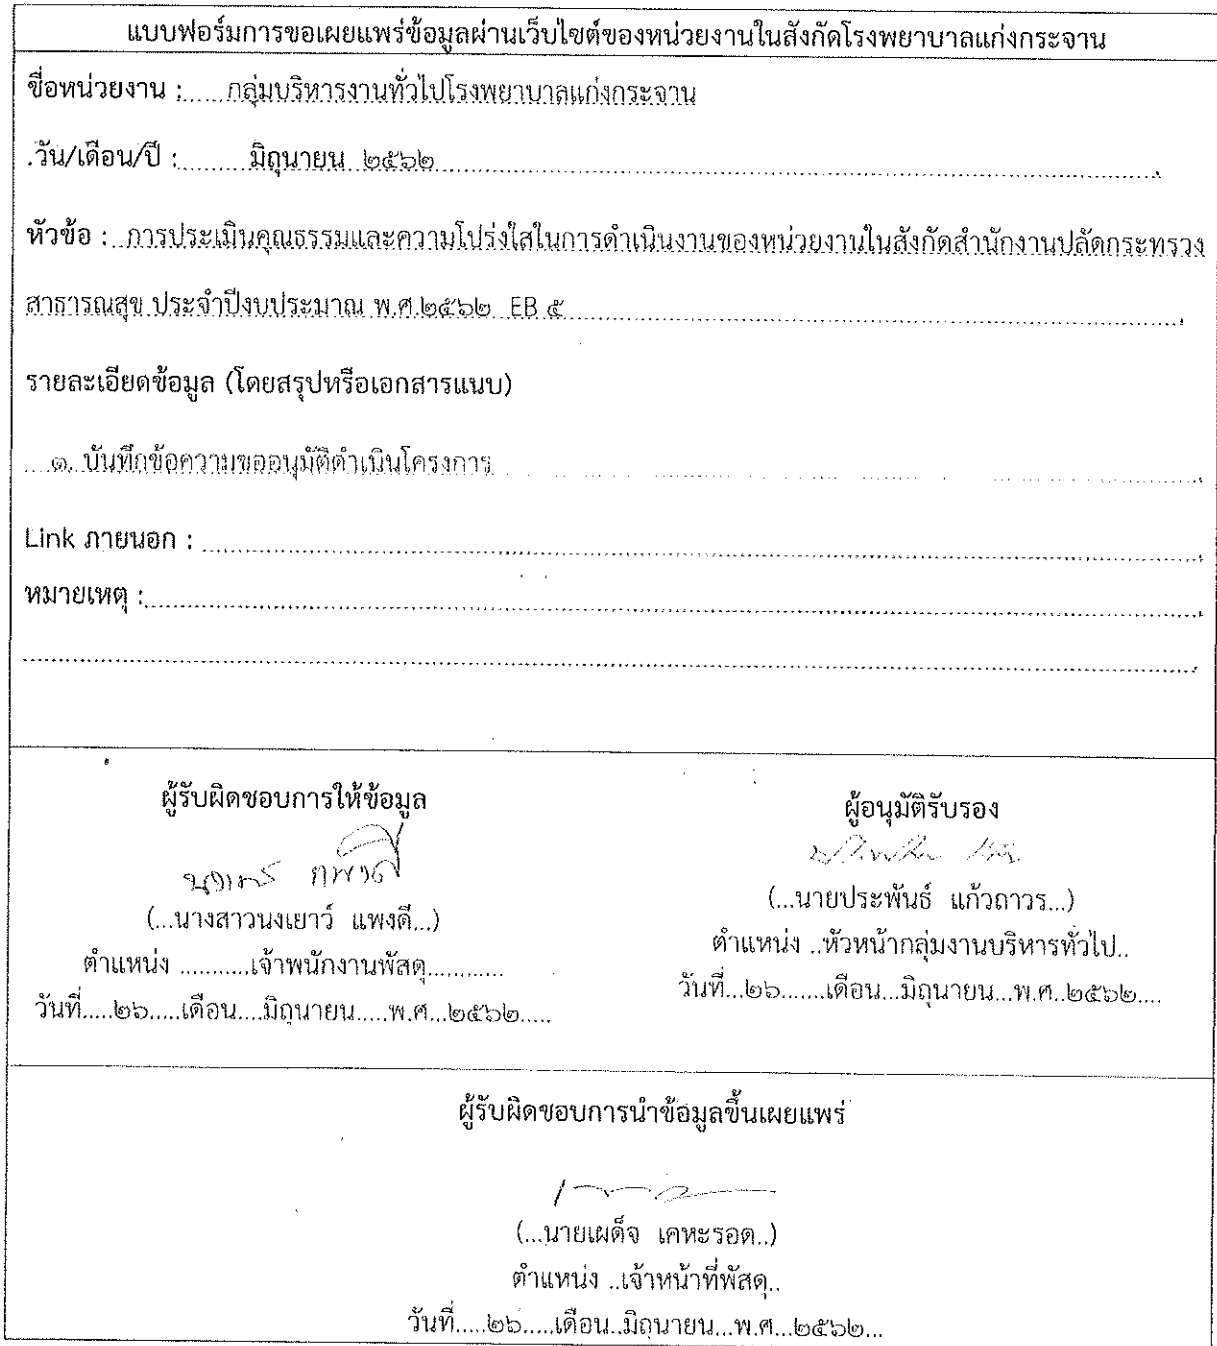 แบบฟอร์มการขอเผยแพร่ข้อมูลผ่านเว็บไซต์ของหน่วยงานในสังกัดโรงพยาบาลแก่งกระจาน
ชื่อหน่วยงาน :.....กลุ่มบริหารงานทั่วไปโรงพยาบาลแก่งกระจาน
.วัน/เดือน/ปี :........มิถุนายน ๒๕๖๒
หัวข้อ : การประเมินคุณธรรมและความโปร่งใสในการดำเนินงานของหน่วยงานในสังกัดสำนักงานปลัดกระทรวง
สาธารณสุข ประจำปีงบประมาณ พ.ศ.๒๕๖๒ EB ๕
รายละเอียดข้อมูล (โดยสรุปหรือเอกสารแนบ)
๑. บันทึกข้อความขออนุมัติดำเนินโครงการ
Link ภายนอก :
หมายเหตุ :
ผู้รับผิดชอบการให้ข้อมูล
นงเยาว์ แพงดี
(...นางสาวนงเยาว์ แพงดี...)
ตำแหน่ง ..........เจ้าพนักงานพัสดุ...........
วันที่.....๒๖.....เดือน....มิถุนายน.....พ.ศ...๒๕๖๒.....
ผู้อนุมัติรับรอง
(...นายประพันธ์ แก้วถาวร...)
ตำแหน่ง ..หัวหน้ากลุ่มงานบริหารทั่วไป..
วันที่...๒๖.......เดือน...มิถุนายน...พ.ศ..๒๕๖๒....
ผู้รับผิดชอบการนำข้อมูลขึ้นเผยแพร่
(...นายเผด็จ เคหะรอด..)
ตำแหน่ง ..เจ้าหน้าที่พัสดุ..
วันที่.....๒๖.....เดือน..มิถุนายน...พ.ศ...๒๕๖๒...